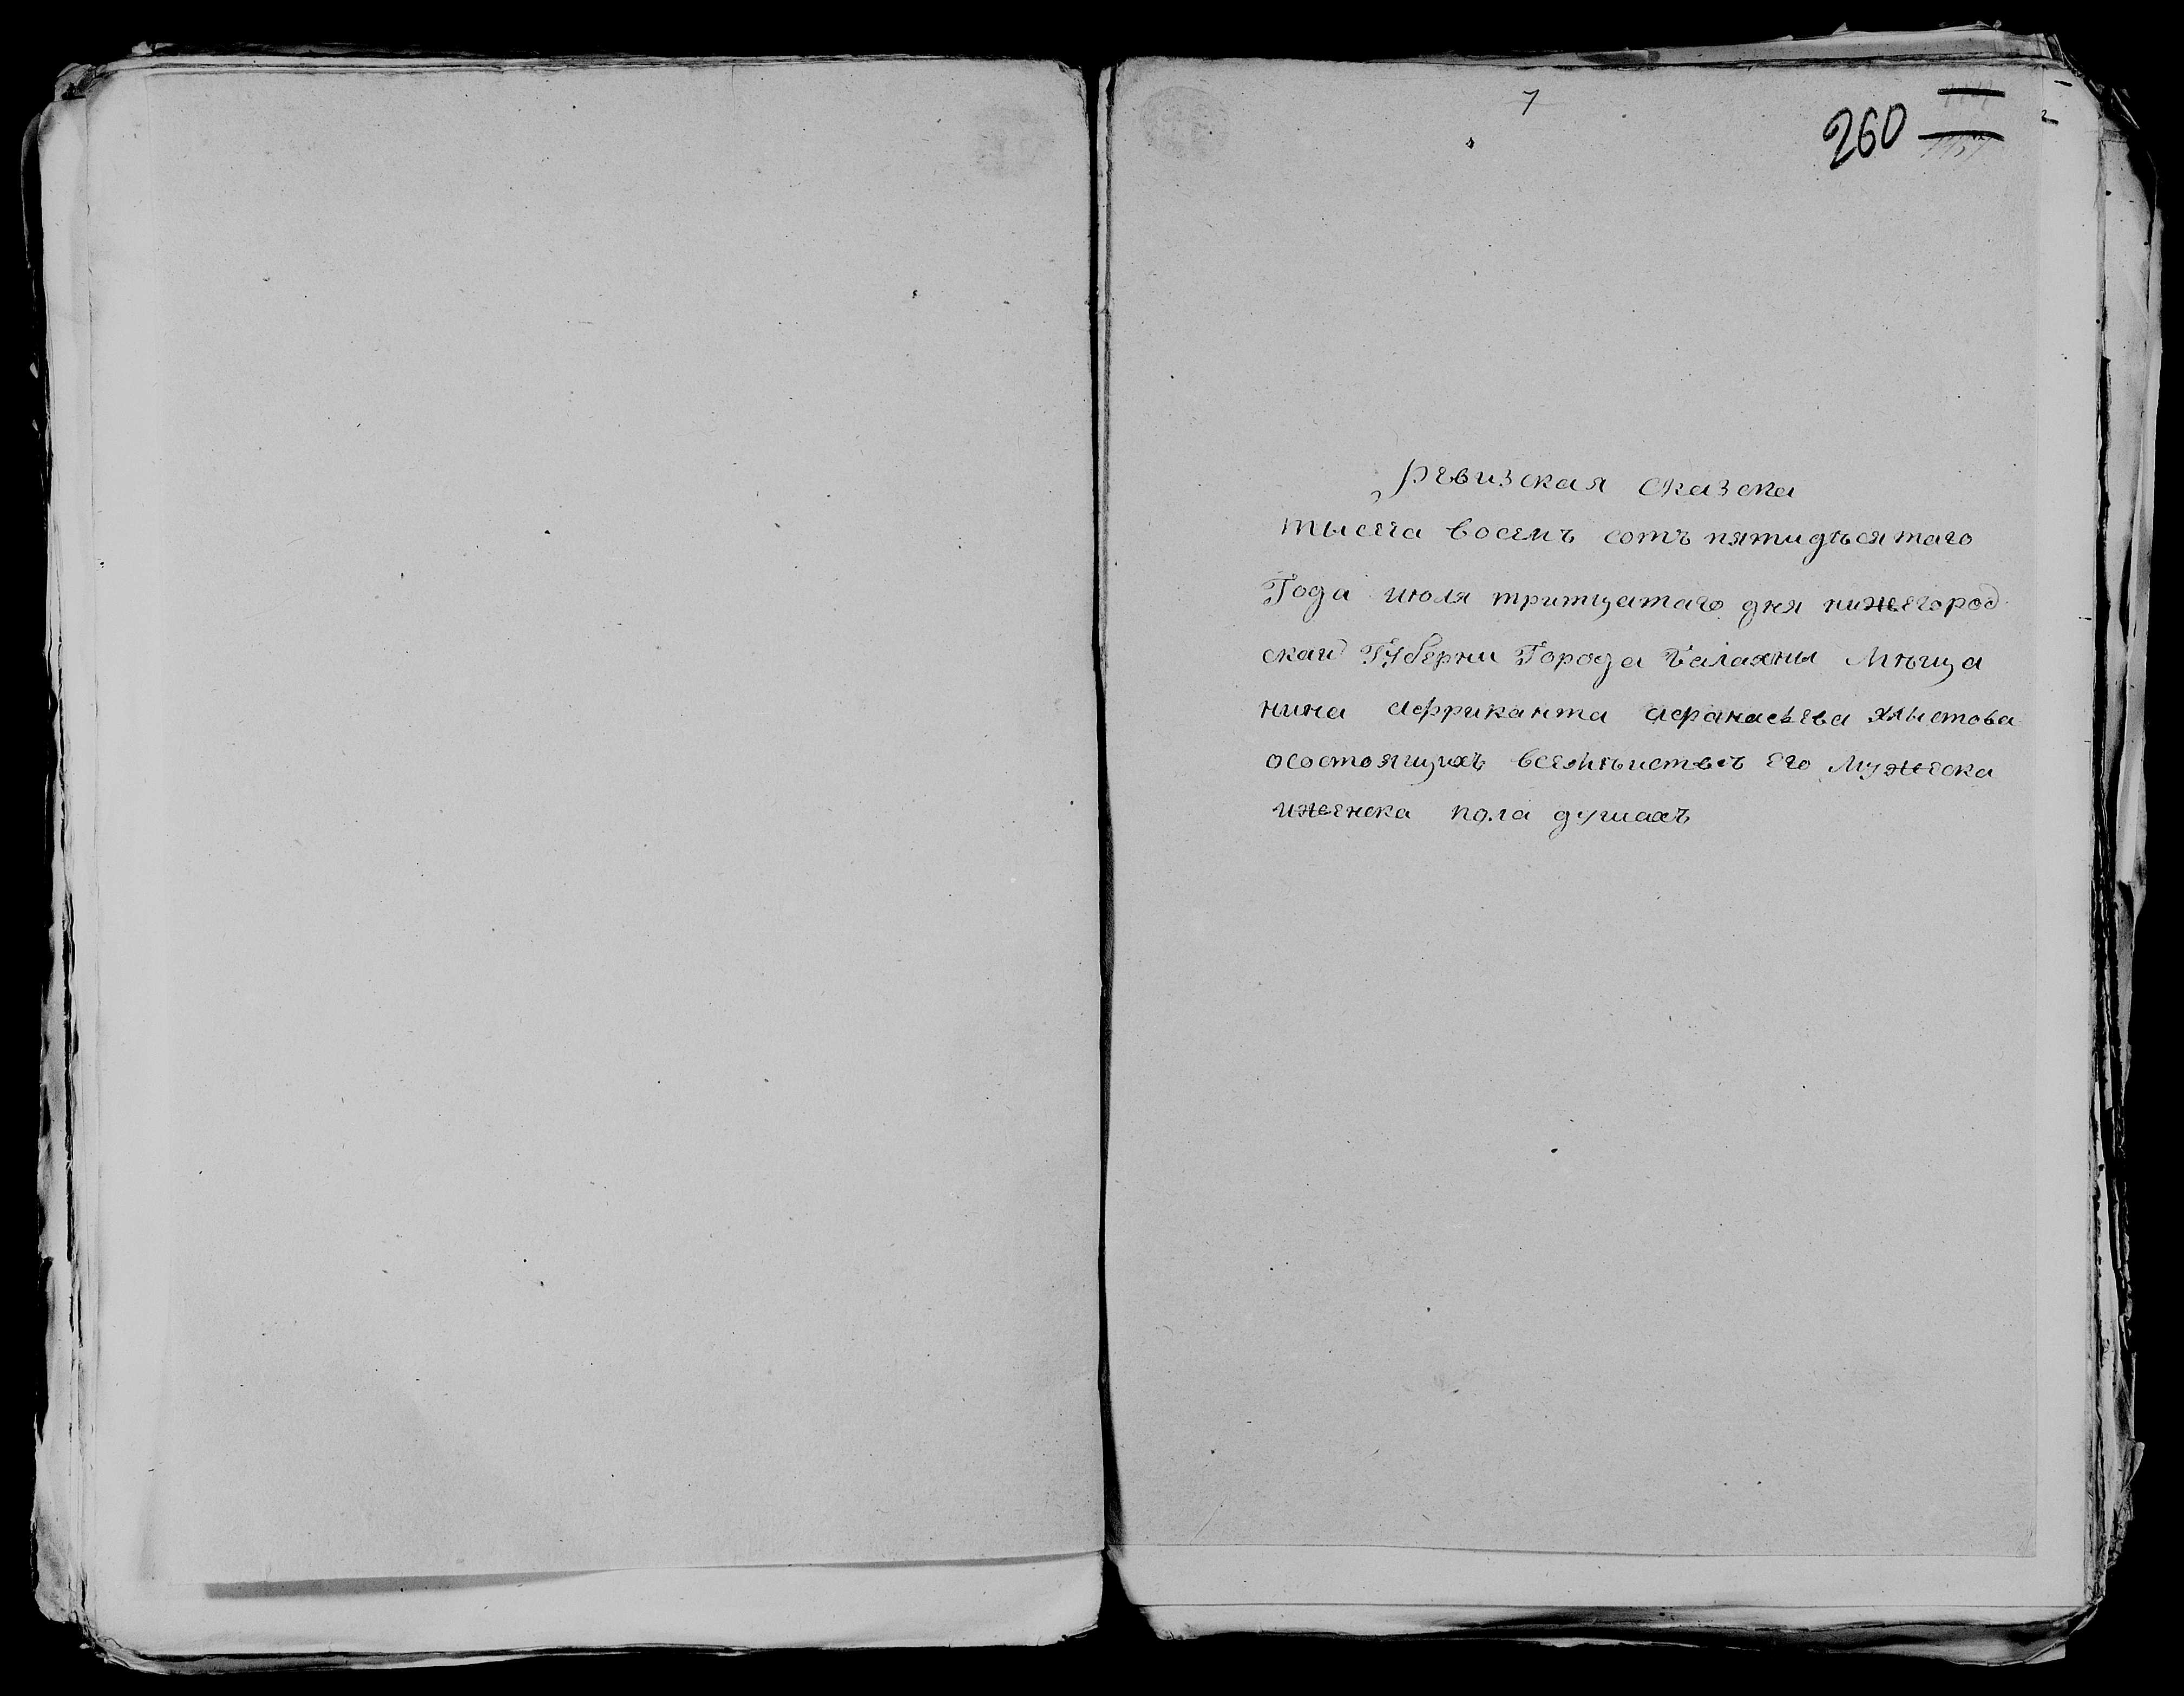 7
260
ревизская сказска
тысеча восемъ сотъ пятидѣсятаго
Года июля тритцатаго дня нижегород
скай Губерни Города Балахны Мѣща
нина африканта афанасьева хлыстова
осостоящихъ всемѣистве его Мужеска
иженска пола душахъ